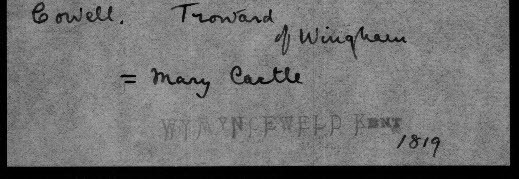 Cowell. Troward
of Wingham
= Mary Castle
WYMYNCEWELD KENT
1819